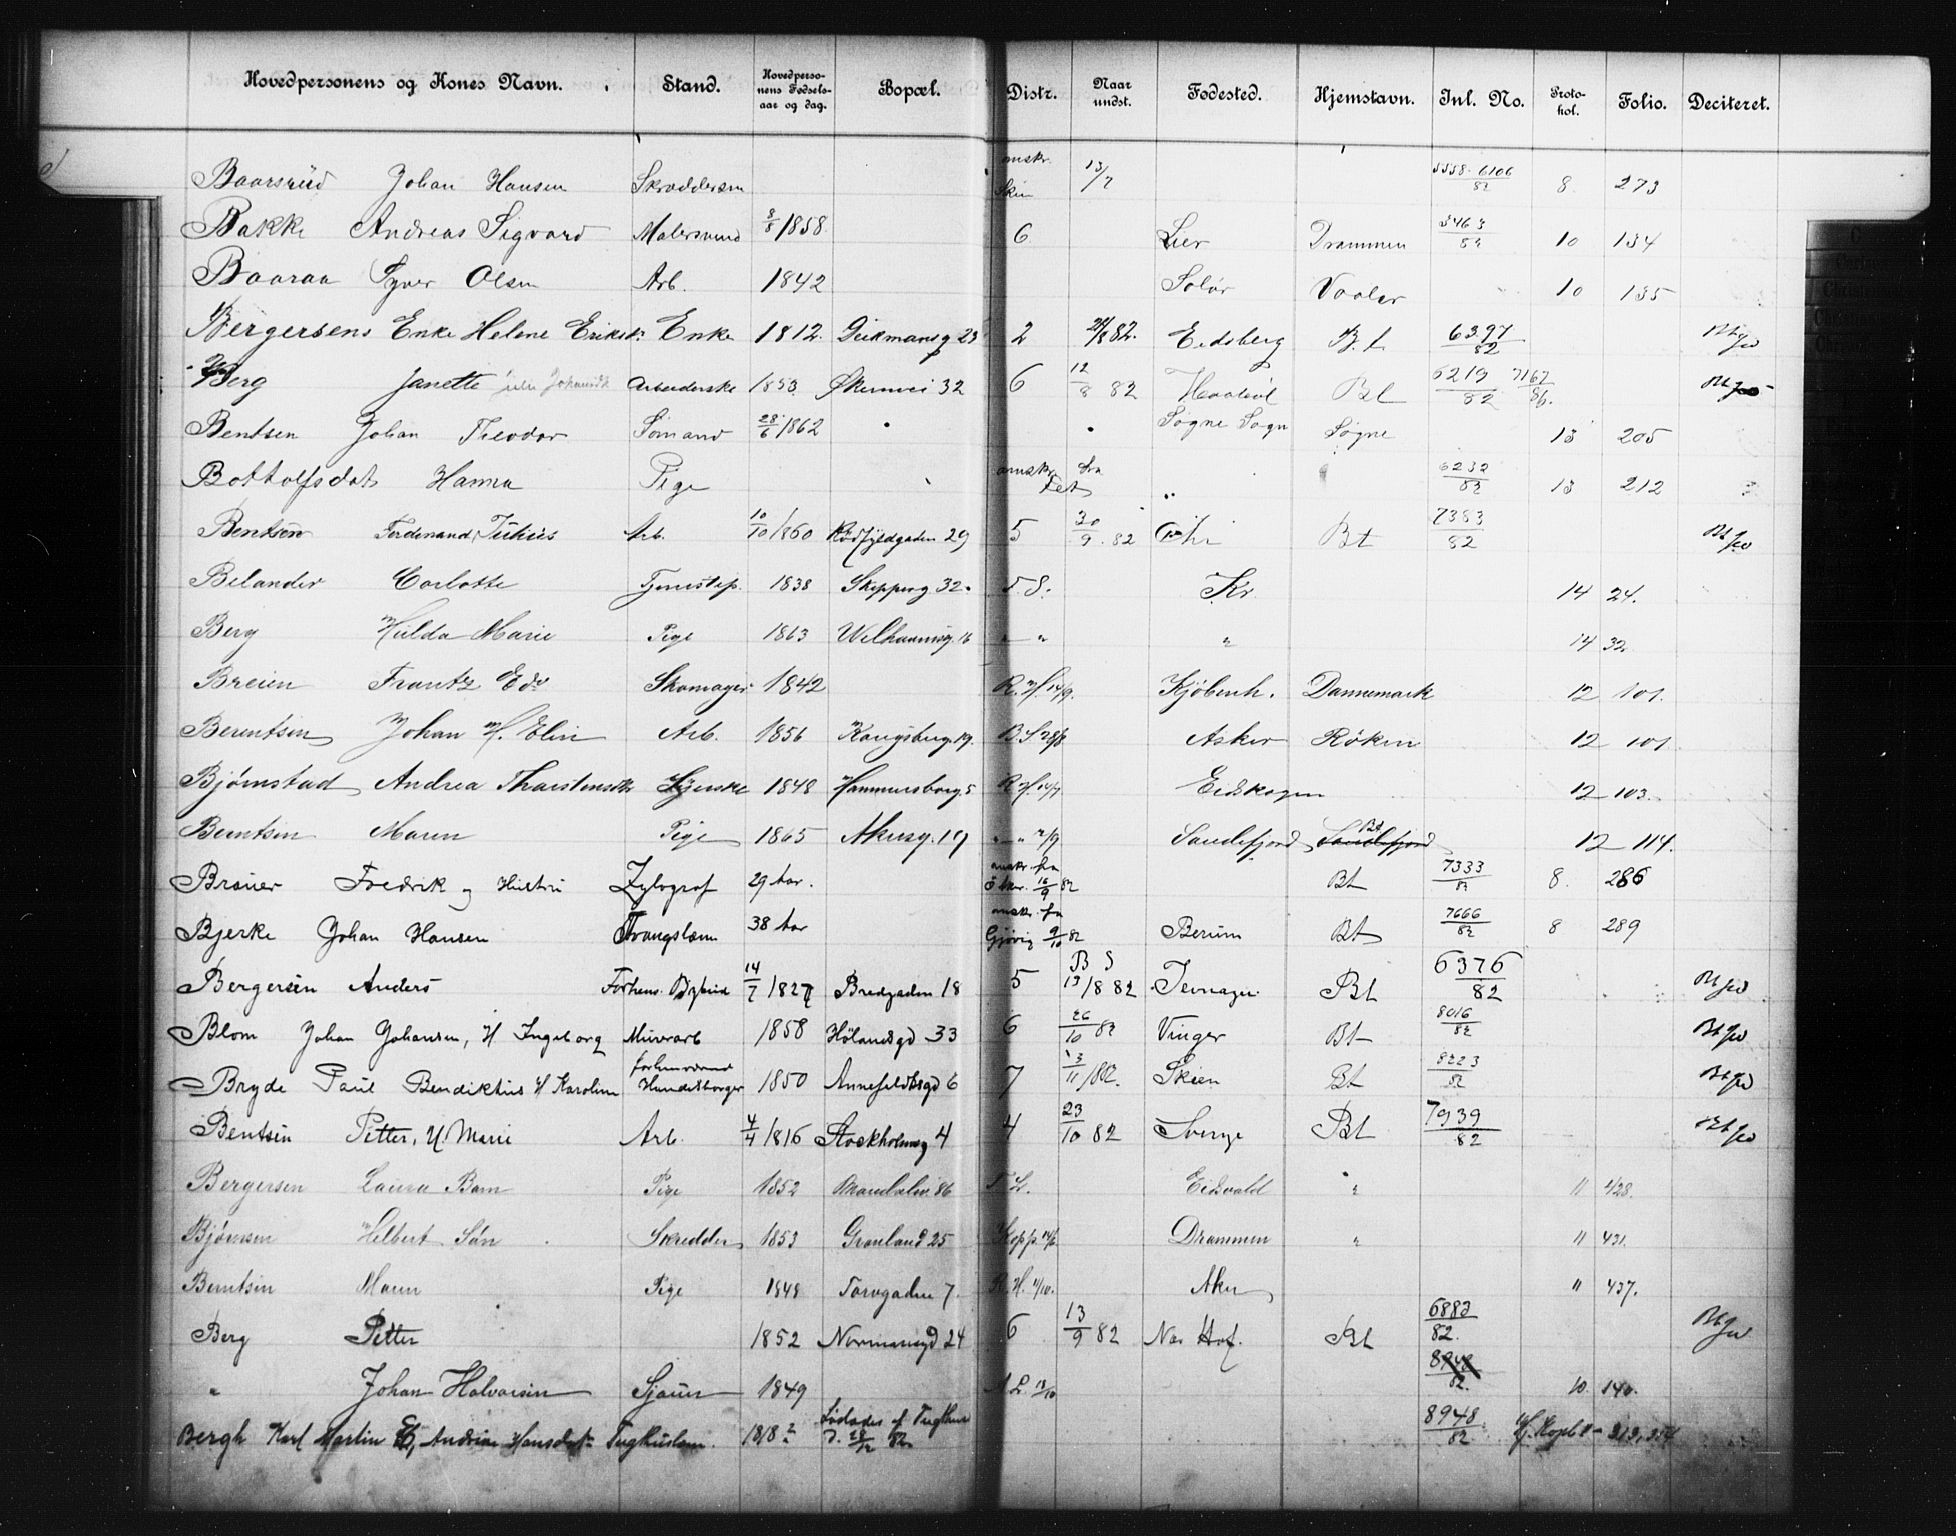 Hovedpersonens og Kones Navn. Stand. Hovedpersonens Fødselsaar og dag. Bopæl. Distr. Naar undst. Fødested. Hjemstavn. Inl. No. Protokol. Folio. Deciteret.
Baarsrud Johan Hansen Skræddersv Skien 13/7 5558-6106/82 8. 273
Bakke Andreas Sigvard Malersvend 1858 6 Lier Drammen 3463/82 10 134
Baaraa Syver Olsen Arb. 1842 Solør Vaaler 10 135
Bergersens Enke Helene Eriksd. Enke 1812. 2 82. Eidsberg B.t 6397/82 Bt
Berg Janette Arbeiderske 1853 Økernvei 32 6 12/8 82 Bt 6219/82 7167/86. Bt
Bentsen Johan Theodor Sømand 28/6 1862 Søgne Sogn Søgne 13 205
Bottolfsdat Hanna Pige 6232/82 13 212
Bentsen Ferdinand Julius Arb. 10/10 1860 Rødfyldgaden 29 5 30/9 82 Chr Bt 7383/82 Bt
Belander Carlotte Tjenestep. 1838 Skipperg 32. F. S. Kr. 14 24.
Berg Hulda Marie Pige 1863 Welhavensg. 16 " " " 14 32
Breien Frantz Edv Skomager 1842 R. H. 14/9. Kjøbenh. Dannemark 12 101.
Berentsen Johan H. Elin Arb. 1856 Kongsberg. 19. B. S. 28/8 Asker Røken 12 101
Bjørnstad Andrea Thorstensdtr 1848 Hammersborg. 5 R. H. Eidskogen 12 103.
Berntsen Maren Pige 1865 Akersg. 19 " " 2/9 Sandefjord Bt Sandefjord 12 114.
Brauer Fredrik og Hustru Xylograf 29 Aar. anskr. fra 16/9 82 Bt 7333/82 8. 286
Bjerke Johan Hansen Tvangslem 38 Aar anskr. fra Gjøvig 9/10 82 Berum Bt 7666/82 8 289
Bergersen Anders 14/7 1827 Bredgaden 18 5 B S 13/8 82 Bt 6376/82 Bt
Blom Johan Johansen, H Ingeborg Murarb 1858 Hølandsgd 33 6 26/10 82 Vinger Bt 8016/82 Bt
Bryde Paul Bendiktus H Karoline forhenværende Handelsborger 1850 Annefeldtsgd 6 7 13/11 82. Skien Bt 8223/82 Bt
Bentsen Petter, H. Marie Arb. 4/4 1816 Stockholmsg 4 4 23/10 82 Sverge Bt 7939/82 Bt
Bergersen Laura Barn Pige 1852 86 F. L. Eidsvold " 11 428.
Bjørnsen Helbert Søn Skredder 1853 Grønland 25 Kopp. 14/6. Drammen " 11 431.
Berntsen Maren Pige 1848 Torvgaden 7. R. H. 4/10. Aker 11 437.
Berg Petter 1852 Normannsgd 24 6 13/9 82 Næs Hof. Bt 6883/82. Bt
" Johan Halvorsen Sjauer 1849 A L. 13/10 8948/82. 10. 140.
Bergh Karl Martin E, Andrine Hansdatr Tugthuslem. 1818 Løslades af Tugthuset d. 28/12 82 8948/82 212, 254